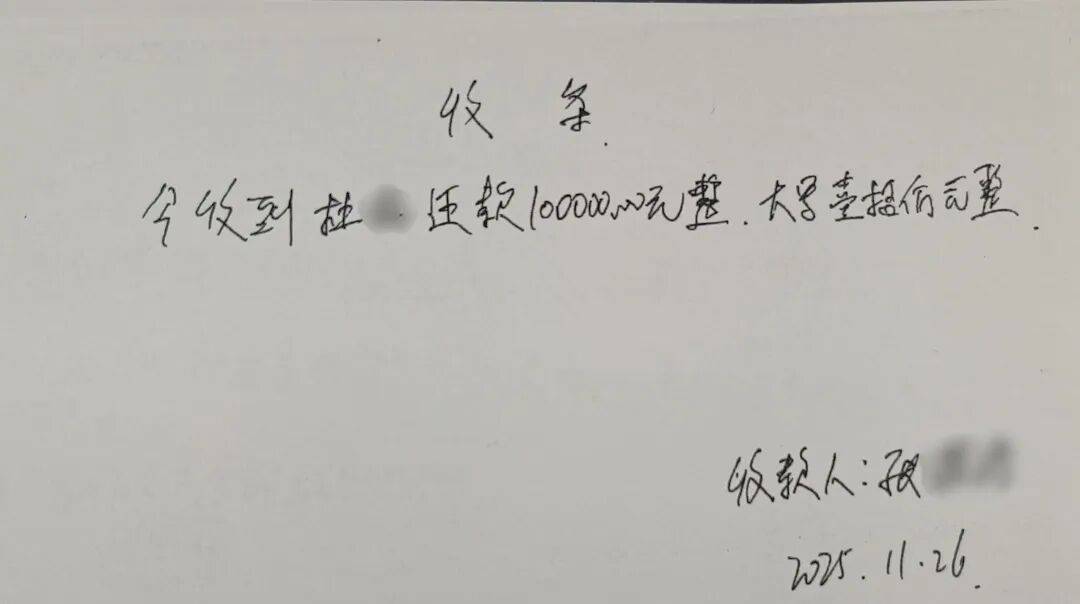 收条.
今收到杜 还款100000.00元整.大写壹拾万元整.
收款人:
2025.11.26.